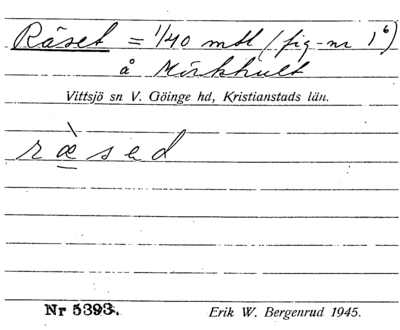 Räset = 1/40 mtl (fig-nr 1⁶)
å Mörkhult
Vittsjö sn V. Göinge hd, Kristianstads län.
ræ̀sed
Nr 5393. Erik W. Bergenrud 1945.